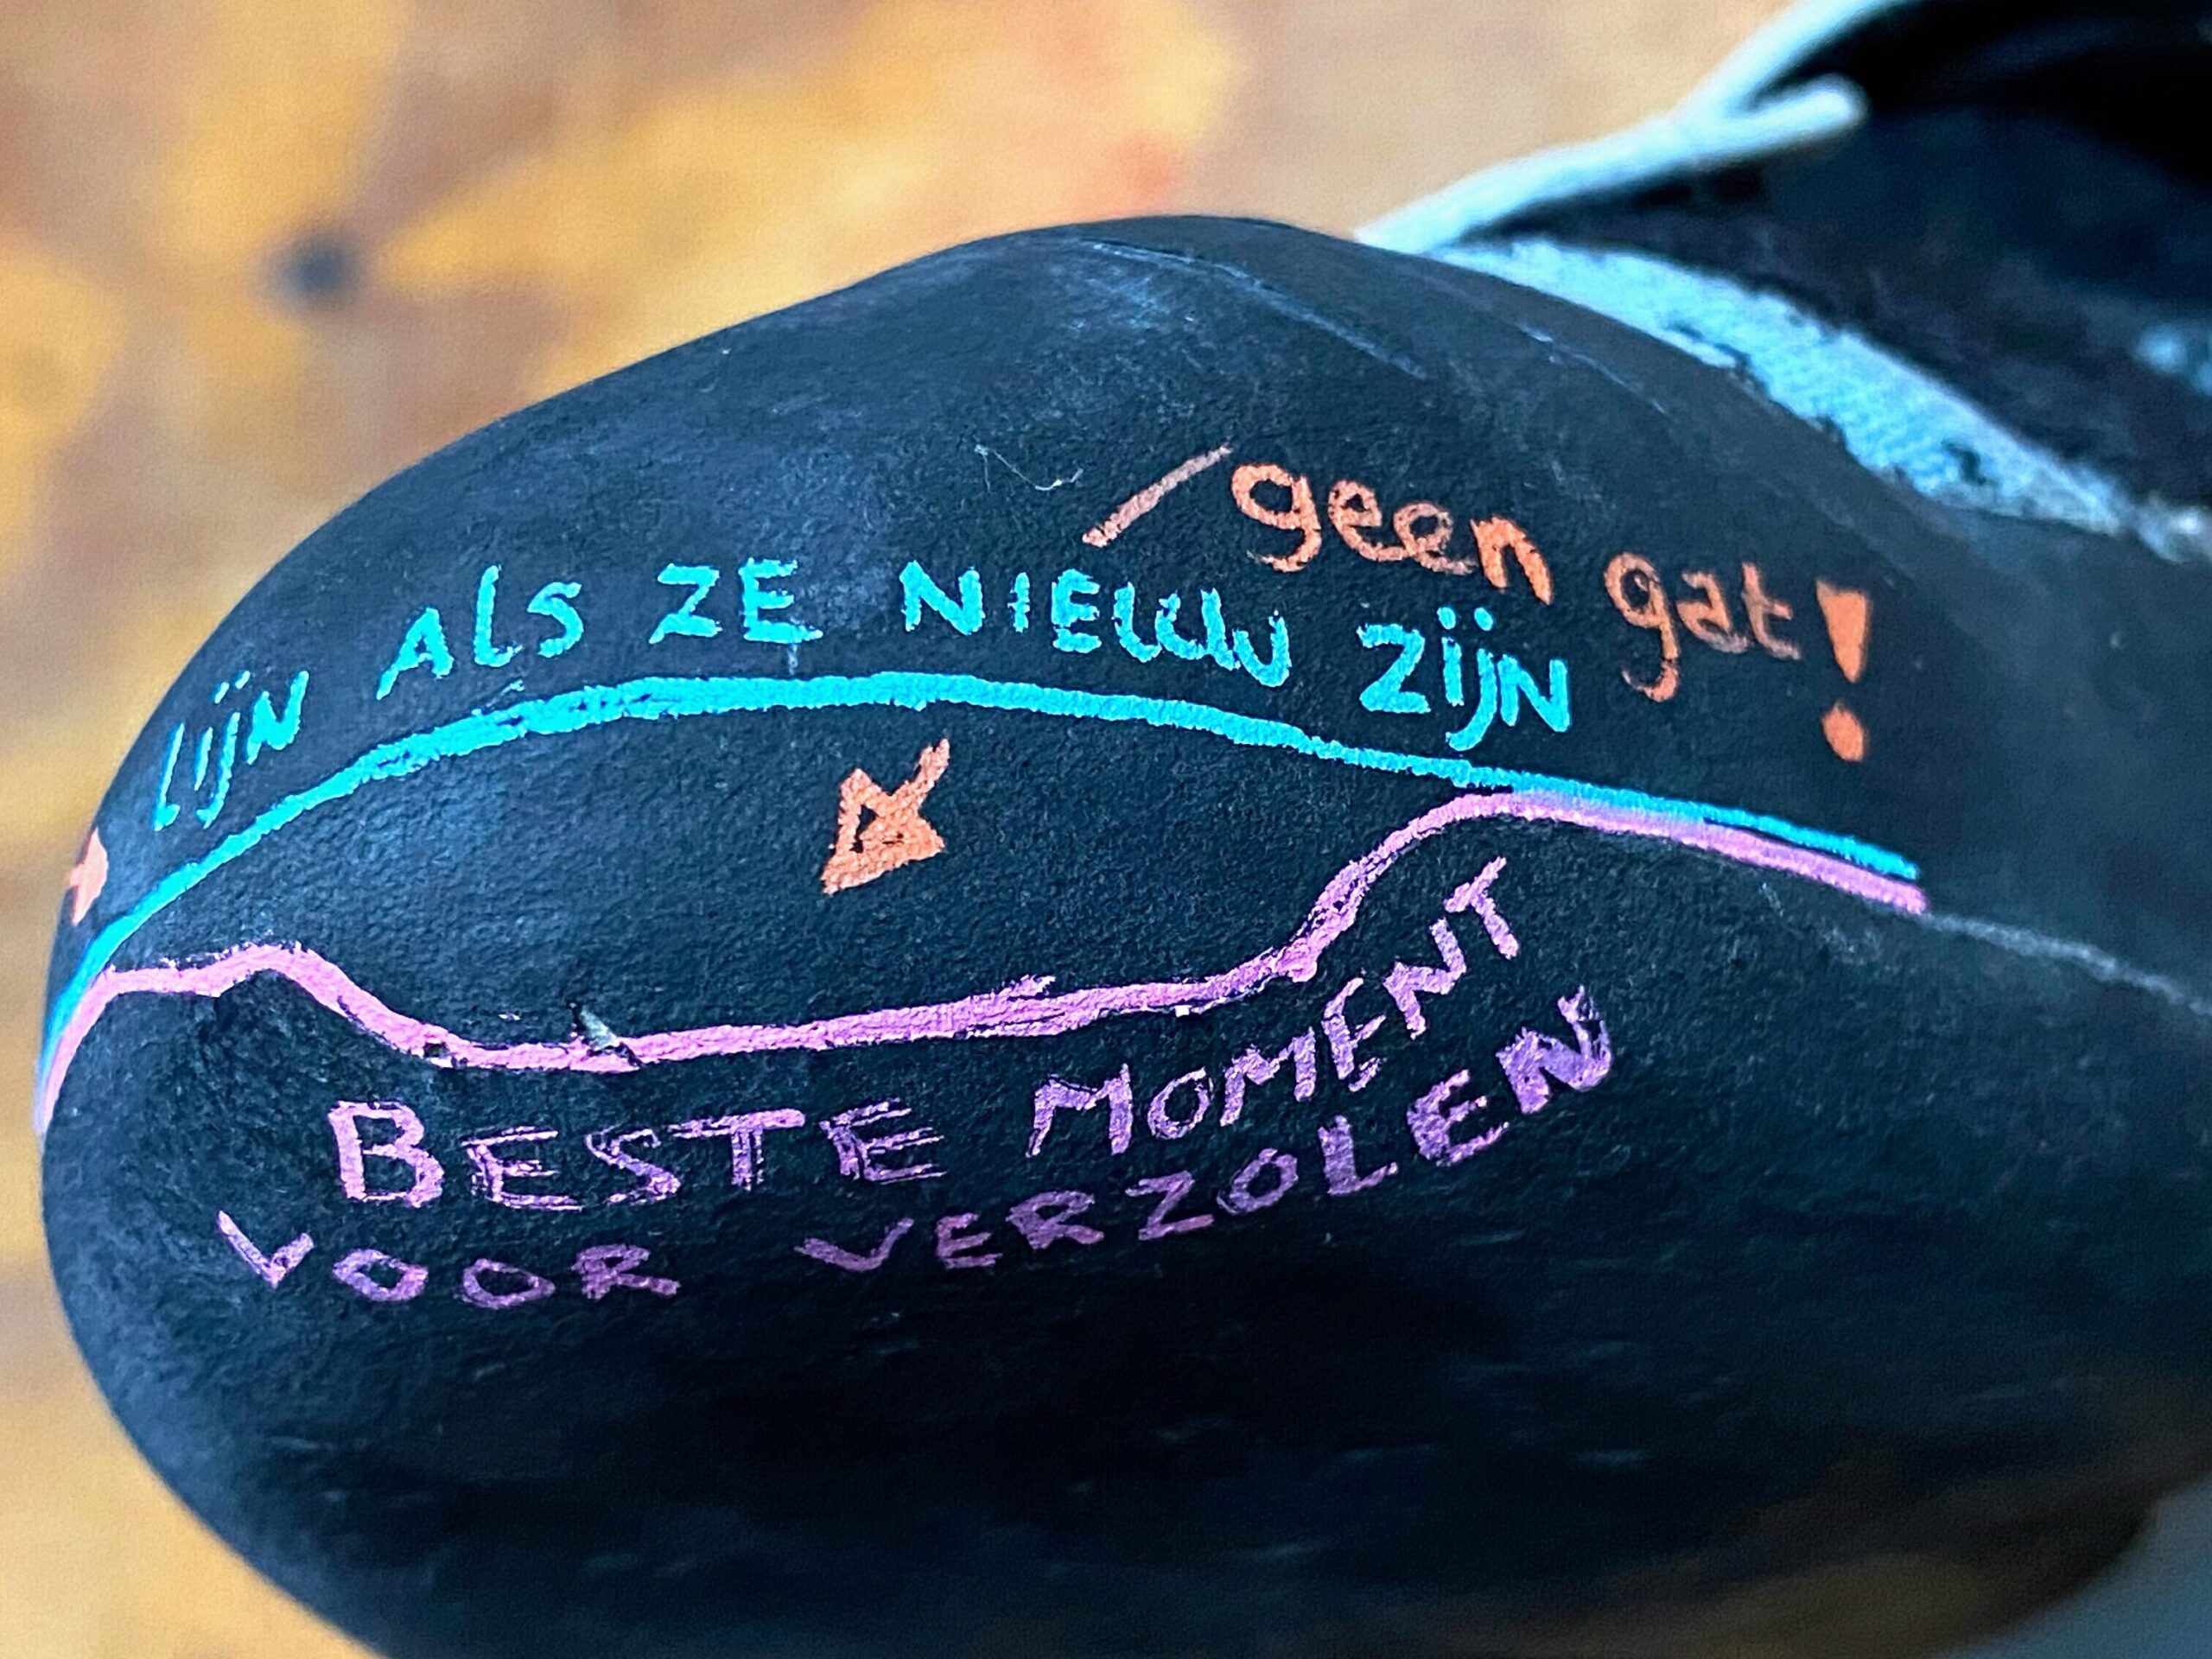 geen gat!
LIJN ALS ZE NIEUW ZIJN
BESTE MOMENT
VOOR VERZOLEN